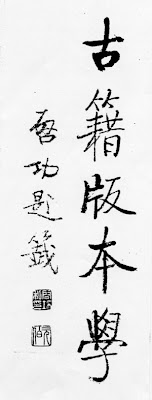 古籍版本學
啓功題籤